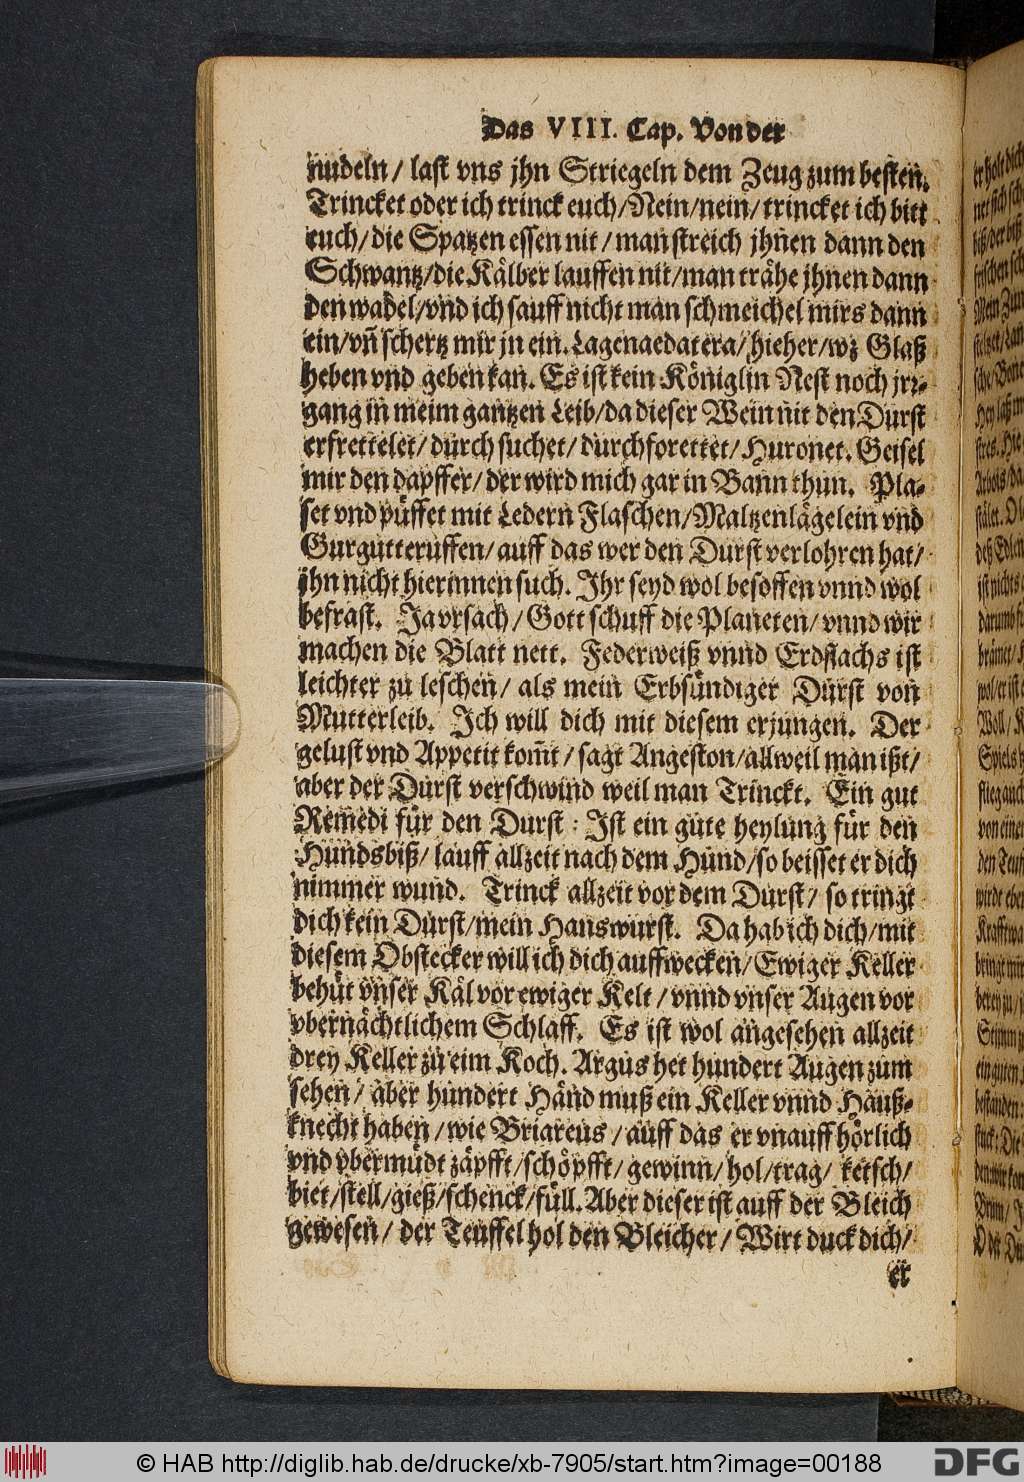 Das VIII. Cap. Von der
nudeln / last vns jhn Striegeln dem Zeug zum besten.
Trincket oder ich trinck euch/Nein/nein/trincket ich bitt
euch/die Spatzen essen nit / man streich jhnen dann den
Schwantz/die Kälber lauffen nit/man trähe jhnen dann
den wadel/vnd ich sauff nicht man schmeichel mirs dann
ein/vñ schertz mir jn ein. Lagenaedatera/hieher/wz Glaß
heben vnd geben kan. Es ist kein Königlin Nest noch jrr-
gang in meim gantzen Leib/da dieser Wein nit den Durst
erfrettelet/durchsuchet/durchforettet/Huronet. Geisel
mir den dapffer/der wird mich gar in Bann thun. Pla-
set vnd püffet mit Ledern Flaschen/Maltzenlägelein vnd
Gurgutteruffen/auff das wer den Durst verlohren hat/
jhn nicht hierinnen such. Ihr seyd wol besoffen vnnd wol
befrast. Ja vrsach/Gott schuff die Planeten/vnnd wir
machen die Blatt nett. Federweiß vnnd Erdflachs ist
leichter zu leschen/als mein Erbsündiger Durst von
Mutterleib. Ich will dich mit diesem erjungen. Der
gelust vnd Appetit kom̃t/sagt Angeston/allweil man ißt/
aber der Durst verschwind weil man Trinckt. Ein gut
Remedi für den Durst: Ist ein gute heylung für den
Hundsbiß/lauff allzeit nach dem Hund/so beisset er dich
nimmer wund. Trinck allzeit vor dem Durst/so tringt
dich kein Durst/mein Hanswurst. Da hab ich dich/mit
diesem Obstecker will ich dich auffwecken/Ewiger Keller
behüt vnser Käl vor ewiger Kelt/vnnd vnser Augen vor
vbernächtlichem Schlaff. Es ist wol angesehen allzeit
drey Keller zu eim Koch. Argus het hundert Augen zum
sehen/aber hundert Händ muß ein Keller vnnd Hauß-
knecht haben/wie Briareus/auff das er vnauffhörlich
vnd vbermüdt zäpfft/schöpfft/gewinn/hol/trag/ketsch/
biet/stell/gieß/schenck/füll. Aber dieser ist auff der Bleich
gewesen/der Teuffel hol den Bleicher/Wirt duck dich/
er
© HAB http://diglib.hab.de/drucke/xb-7905/start.htm?image=00188
DFG